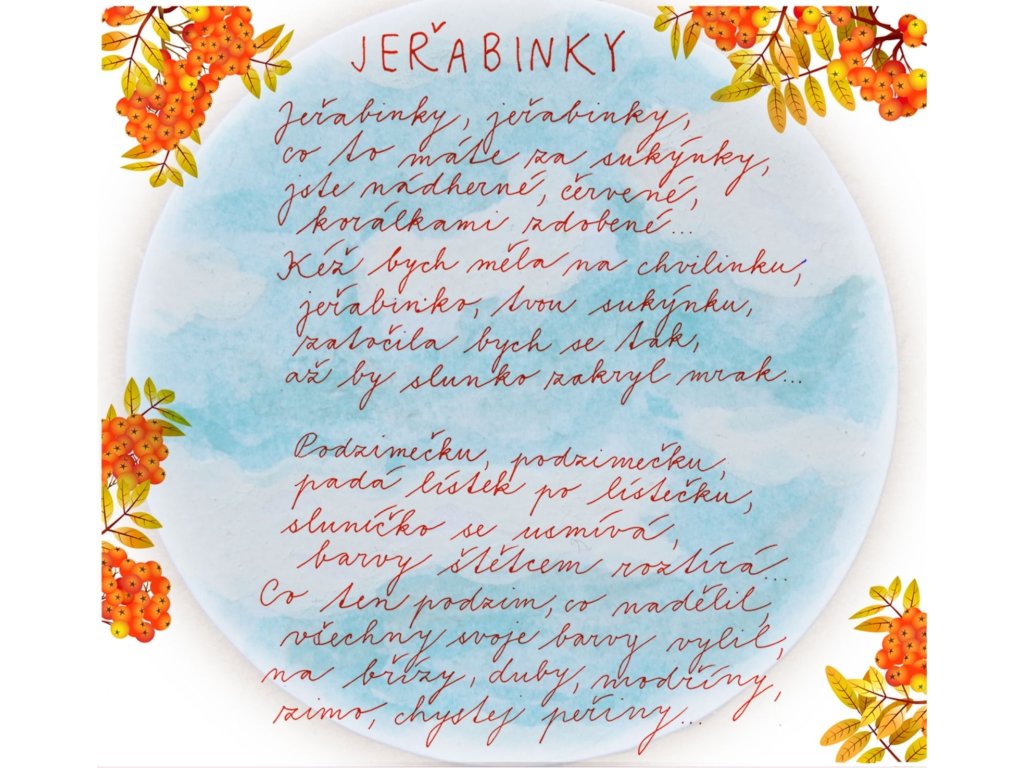 JEŘABINKY
Jeřabinky, jeřabinky,
co to máte za sukýnky,
jste nádherné, červené,
korálkami zdobené...
Kéž bych měla na chvilinku,
jeřabinko, tvou sukýnku,
zatočila bych se tak,
až by slunko zakryl mrak...
Podzimečku, podzimečku,
padá lístek po lístečku,
sluníčko se usmívá,
barvy štětcem roztírá...
Co ten podzim, co nadělil,
všechny svoje barvy vylil,
na břízy, duby, modříny,
zimo, chystej peřiny...